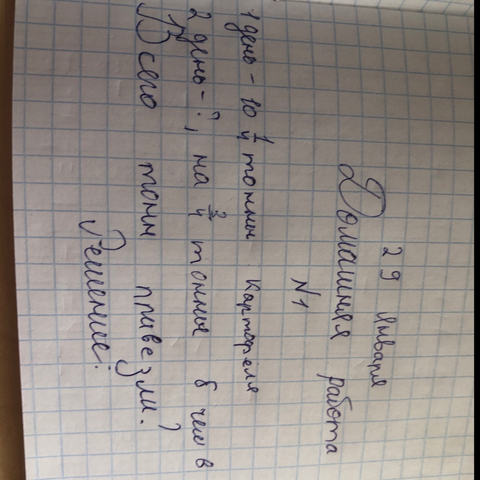 29 января
Домашняя работа
N1
1 день - 10 1/4 тонны картофеля
2 день - ?, на 3/4 тонны б чем в
Всего тонн привезли?
Решение: